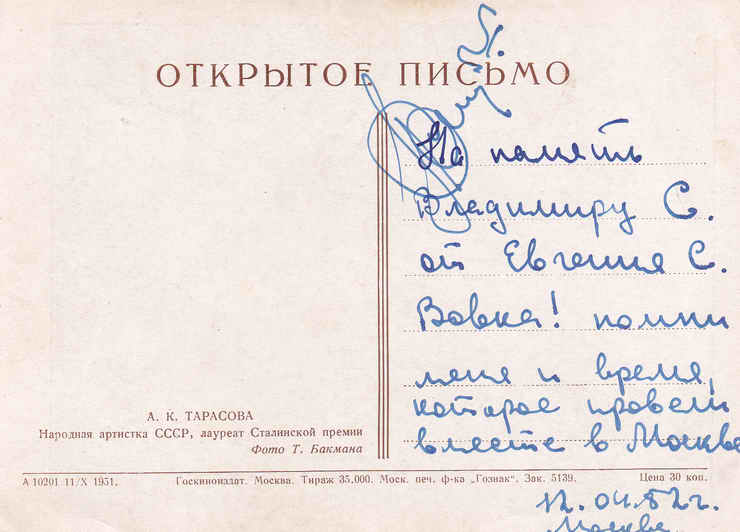 ОТКРЫТОЕ ПИСЬМО
На память
Владимиру С.
от Евгения С.
Вовка! помни
меня и время,
которое провели
вместе в Москве
12.04.52 г.
Москва
А. К. ТАРАСОВА
Народная артистка СССР, лауреат Сталинской премии
Фото Т. Бакмана
А 10201 11/X 1951. Госкиноиздат. Москва. Тираж 35.000. Моск. печ. ф-ка „Гознак“. Зак. 5139. Цена 30 коп.